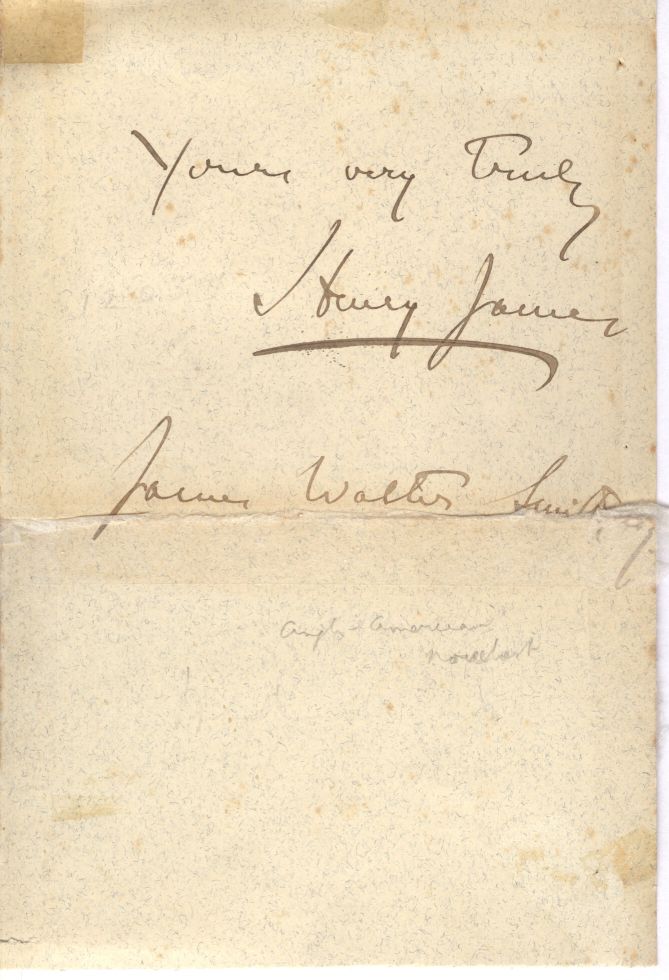 Yours very truly
Henry James
James Walter Smith
Anglo-American
novelist